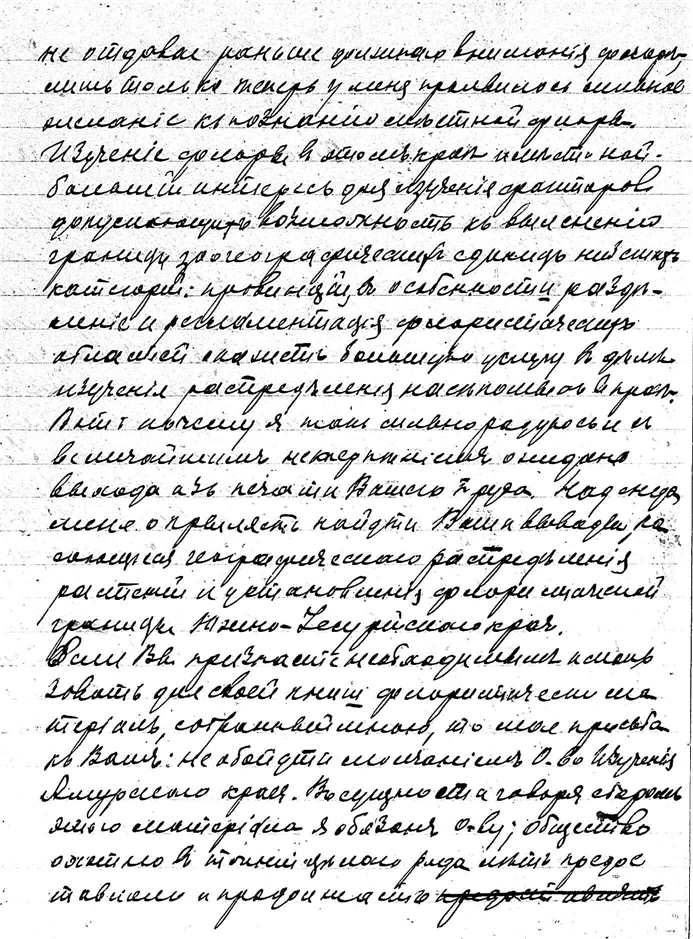 не отдавал раньше должнаго вниманія флорѣ,
лишь только теперь у меня проявилось сильное
желаніе къ познанію мѣстной флоры.
Изученіе флоры въ этомъ краѣ имѣетъ наи-
большій интересъ для изученія факторовъ
допускающихъ возможность къ выясненію
границъ зоогеографическихъ единицъ низшихъ
категорій: провинцій, въ особенности раздѣ-
леніе и регламентація флористическихъ
областей окажетъ большую услугу въ дѣлѣ
изученія распредѣленія насѣкомыхъ въ краѣ.
Вотъ почему я такъ сильно радуюсь и съ
величайшимъ нетерпѣніемъ ожидаю
выхода изъ печати Вашего труда. Надежда
меня окрыляетъ найдти Ваши выводы, ка
сающіеся географическаго распредѣленія
растеній и установленія флористической
границы Южно-Уссурійскаго края.
Если Вы признаете необходимымъ исполь
зовать для своей книги флористическій ма
теріалъ, собранный мною, то моя просьба
къ Вамъ: не обойдти молчаніемъ О-во Изученія
Амурскаго края. Въ сущности говоря сборомъ
этого матеріала я обязанъ О-ву; Общество
охотно въ теченіи цѣлаго ряда лѣтъ предос
тавляло и продолжаетъ